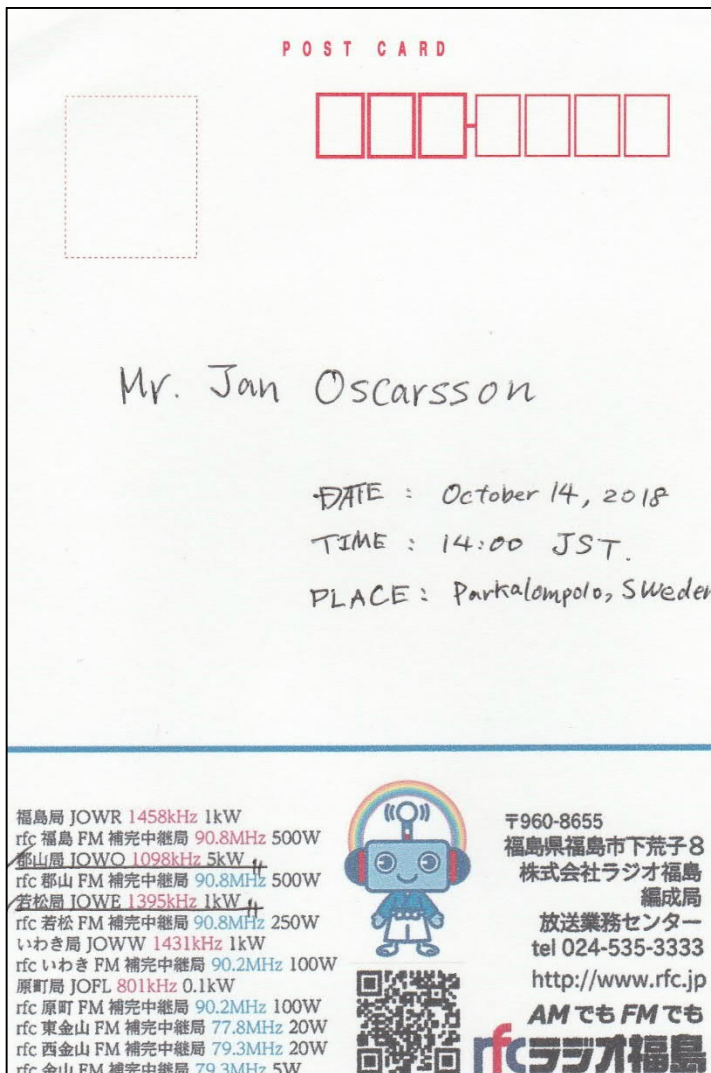 POST CARD
Mr. Jan Oscarsson
DATE : October 14, 2018
TIME : 14:00 JST.
PLACE : Parkalompolo, Sweden
福島局 JOWR 1458kHz 1kW
rfc 福島 FM 補完中継局 90.8MHz 500W
郡山局 JOWO 1098kHz 5kW
rfc 郡山 FM 補完中継局 90.8MHz 500W
若松局 JOWE 1395kHz 1kW
rfc 若松 FM 補完中継局 90.8MHz 250W
いわき局 JOWW 1431kHz 1kW
rfc いわき FM 補完中継局 90.2MHz 100W
原町局 JOFL 801kHz 0.1kW
rfc 原町 FM 補完中継局 90.2MHz 100W
rfc 東金山 FM 補完中継局 77.8MHz 20W
rfc 西金山 FM 補完中継局 79.3MHz 20W
rfc 金山 FM 補完中継局 79.3MHz 5W
〒960-8655
福島県福島市下荒子8
株式会社ラジオ福島
編成局
放送業務センター
tel 024-535-3333
http://www.rfc.jp
AMでもFMでも
rfcラジオ福島